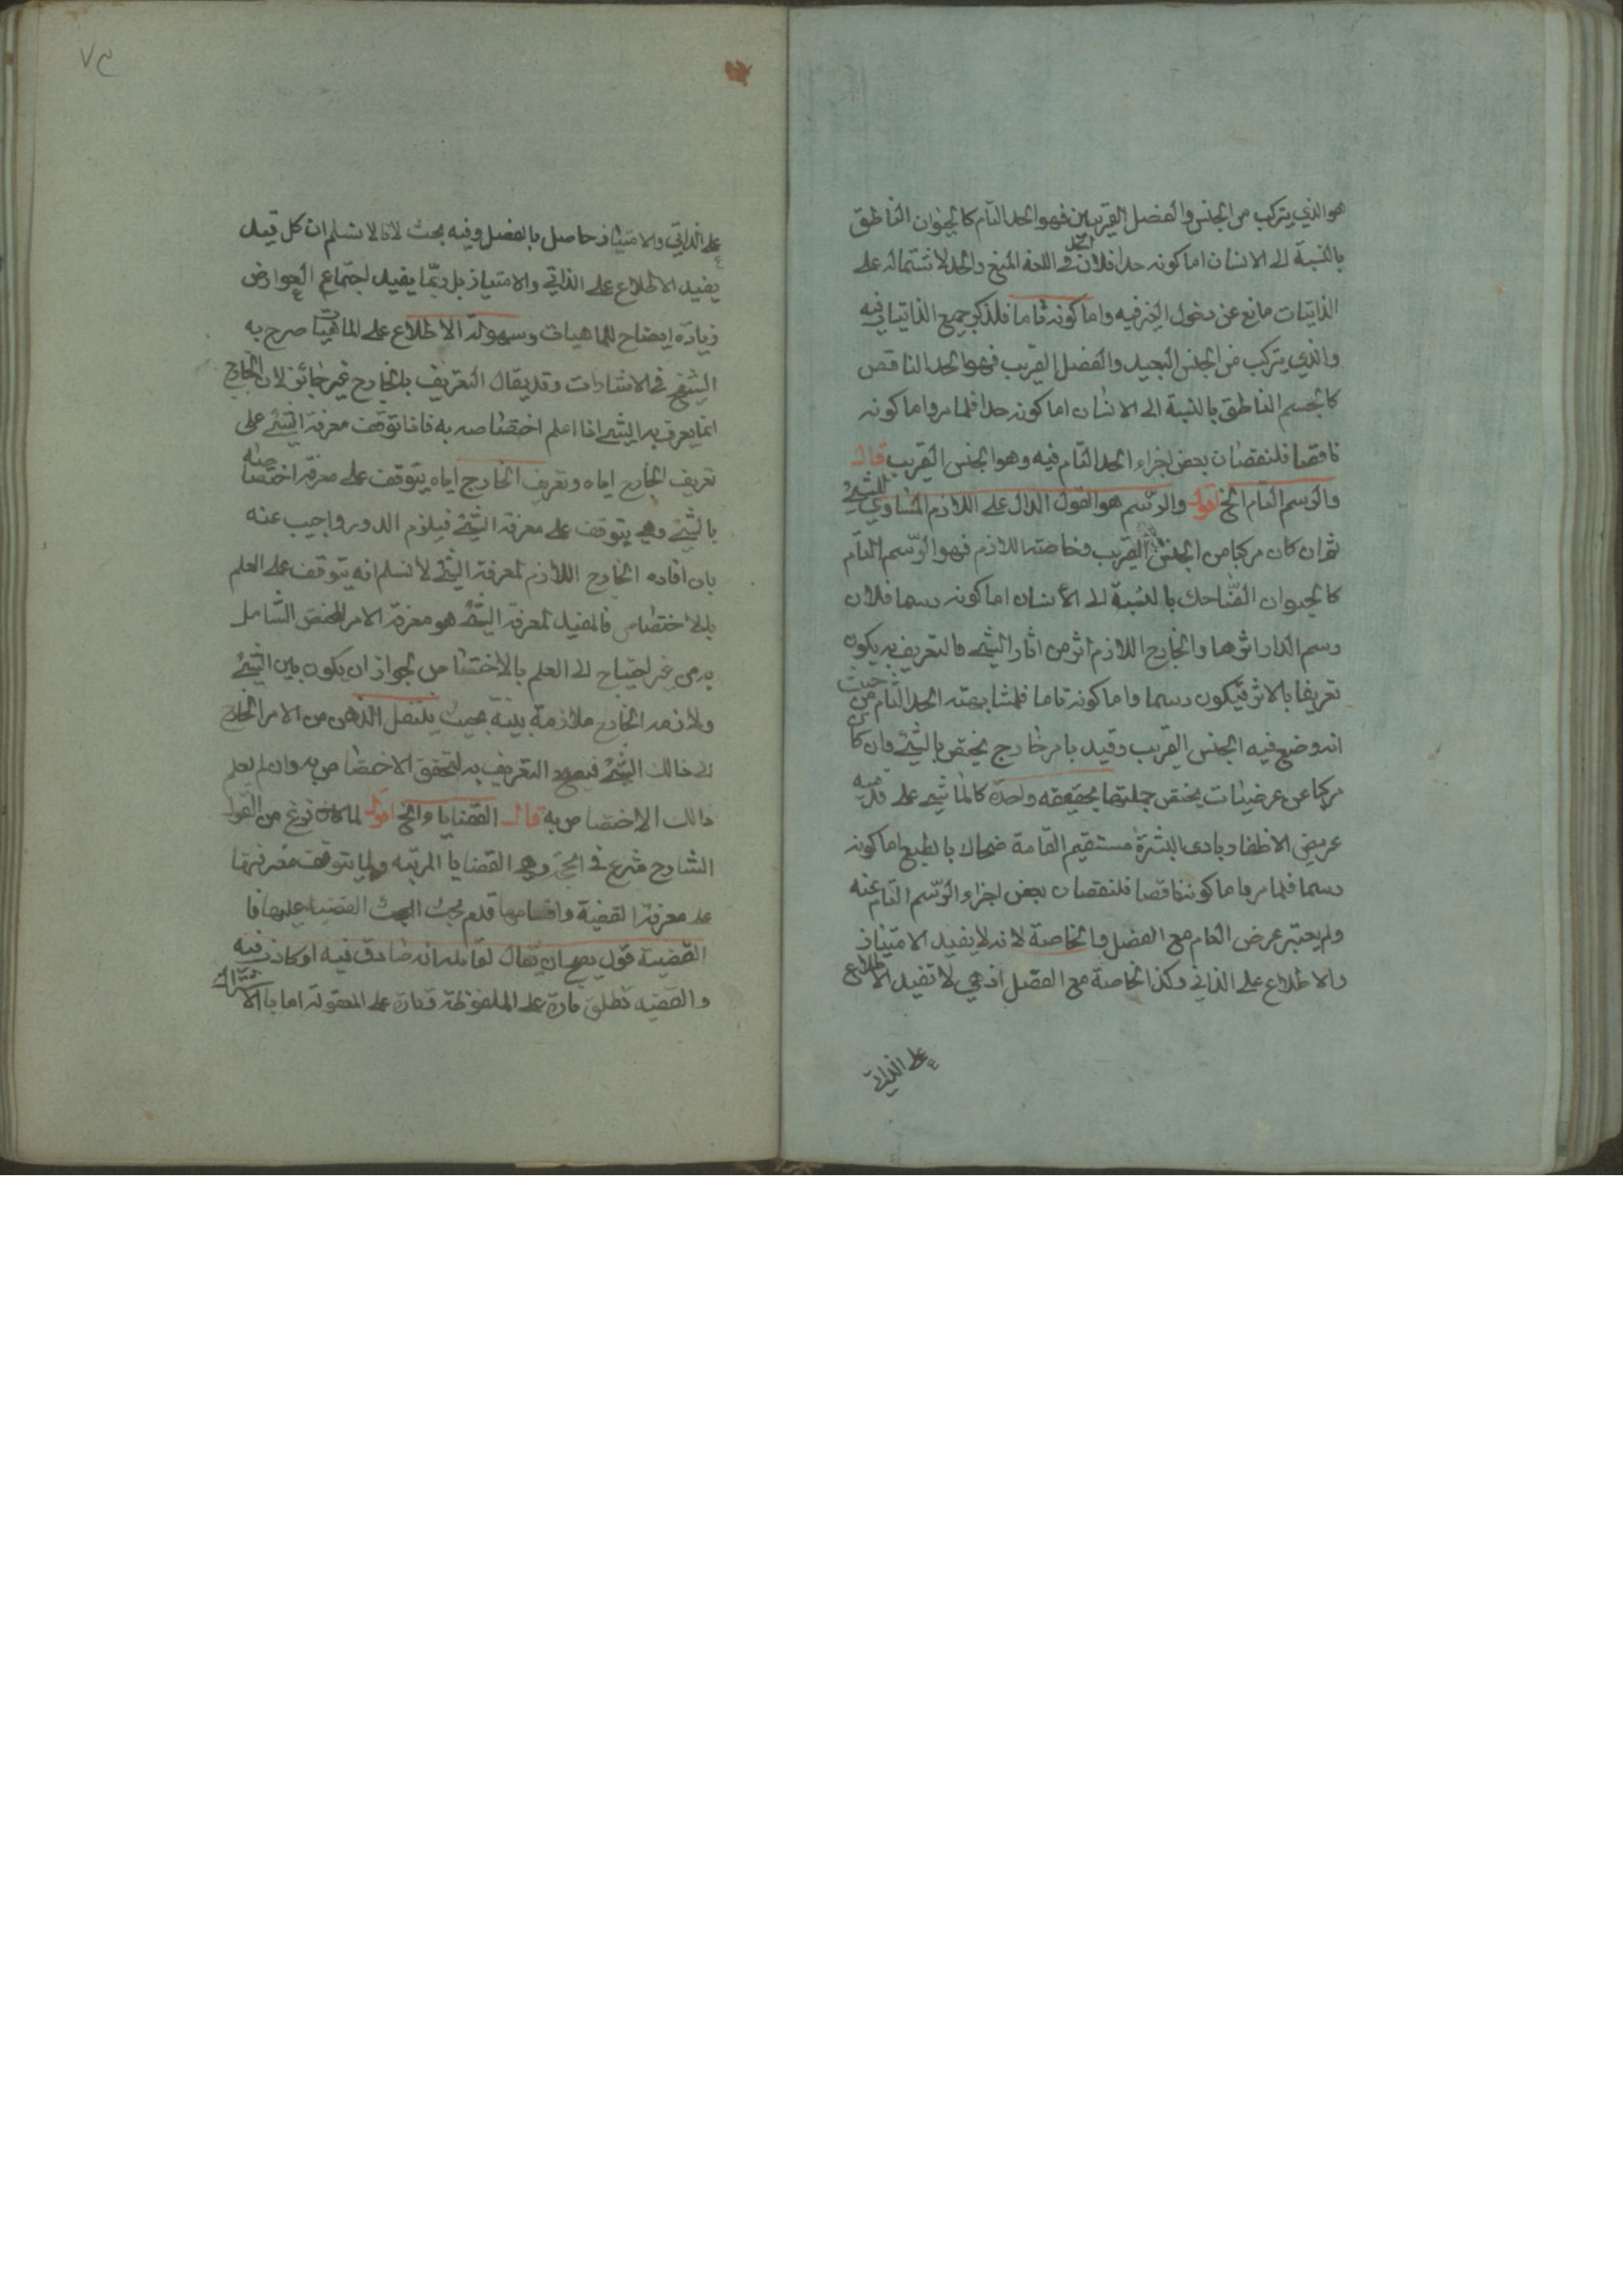 هو الذي يتركب من الجنس والفصل القريبين فهو الحد التام كالحيوان الناطق
بالنسبة الى الانسان اما كونه حدا فلان الحد في اللغة المنع والحد لاشتماله على
الذاتيات مانع عن دخول الغير فيه واما كونه تاما فلذكر جميع الذاتيات فيه
والذي يتركب من الجنس البعيد والفصل القريب فهو الحد الناقص
كالجسم الناطق بالنسبة الى الانسان اما كونه حدا فلما مر واما كونه
ناقصا فلنقصان بعض اجزاء الحد التام فيه وهو الجنس القريب قال
والرسم التام الخ اقول والرسم هو القول الدال على اللازم المساوي للشئ
ثم ان كان مركبا من الجنس القريب وخاصته اللازم فهو الرسم التام
كالحيوان الضاحك بالنسبة الى الانسان اما كونه رسما فلان
رسم الدار اثرها والخارج اللازم اثر من اثار الشئ فالتعريف به يكون
تعريفا بالاثر فيكون رسما واما كونه تاما فلمشابهته الحد التام من حيث
انه وضع فيه الجنس القريب وقيد بامر خارج يختص بالشئ وان كان
مركبا عن عرضيات يختص جملتها بحقيقة واحدة كالماشي على قدميه
عريض الاظفار بادى البشرة مستقيم القامة ضحاك بالطبع اما كونه
رسما فلما مر واما كونه ناقصا فلنقصان بعض اجزاء الرسم التام عنه
ولم يعتبر عرض العام مع الفصل والخاصة لانه لا يفيد الامتياز
والاطلاع على الذاتي وكذا الخاصة مع الفصل اذ هي لا تفيد الاطلاع
على الذاتي
على الذاتي والامتياز حاصل بالفصل وفيه بحث لانا لا نسلم ان كل قيد
يفيد الاطلاع على الذاتي والامتياز بل ربما يفيد اجتماع العوارض
زيادة ايضاح للماهيات وسهولة الاطلاع على الماهيات صرح به
الشيخ في الاشارات وقد يقال التعريف بالخارج غير جائز لان الخارج
انما يعرف به الشئ اذا اعلم اختصاصه به فاذا توقف معرفة الشئ على
تعريف الخارج اياه وتعريف الخارج اياه يتوقف على معرفة اختصاصه
بالشئ وهي يتوقف على معرفة الشئ فيلزم الدور واجيب عنه
بان افاده الخارج اللازم لمعرفة الشئ لا نسلم انه يتوقف على العلم
بالاختصاص فالمفيد لمعرفة الشئ هو معرفة الامر المختص الشامل
به من غير احتياج الى العلم بالاختصاص لجواز ان يكون بين الشئ
ولازمه الخارج ملازمة بينة بحيث ينتقل الذهن من الامر الخارج
الى ذالك الشئ فيصح التعريف به لتحقق الاختصاص به وان لم يعلم
ذالك الاختصاص به قال القضايا والخ اقول لما كان فرغ من القول
الشارح شرع في الحجة وهي القضايا المرتبه ولما يتوقف معرفتها
على معرفة القضية واقسامها قدم بحث القضية عليها فا
القضية قول يصح ان يقال لقائله انه صادق فيه او كاذب فيه
والقضيه تطلق تارة على الملفوظة وتارة على المعقولة اما بالاشتراك